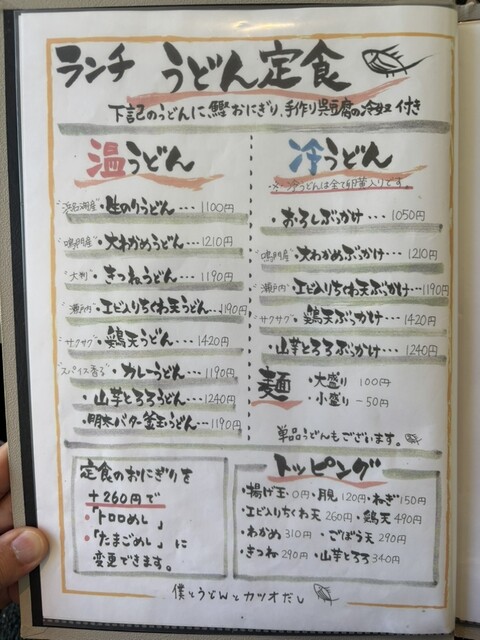 ランチ うどん定食
下記のうどんに、鰹おにぎり、手作り呉豆腐の冷奴 付き
温うどん
"浜名湖産"・生のりうどん… 1100円
"鳴門産"・大わかめうどん…1210円
"大判"・きつねうどん…1190円
"瀬戸内"・エビ入りちくわ天うどん…1190円
"サクサク"・鶏天うどん…1420円
"スパイス香る"・カレーうどん…1190円
・山芋とろろうどん…1240円
・明太バター釜玉うどん…1190円
冷うどん
※冷うどんは全て卵黄入りです。
・おろしぶっかけ… 1050円
"鳴門産"・大わかめぶっかけ… 1210円
"瀬戸内"・エビ入りちくわ天ぶっかけ…1190円
"サクサク"・鶏天ぶっかけ… 1420円
・山芋とろろぶっかけ… 1240円
麺 ・大盛り 100円
・小盛り -50円
単品うどんもございます。
定食のおにぎりを
+260円で
・「トロロめし」
・「たまごめし」に
変更できます。
トッピング
・揚げ玉・0円・月見 120円・ねぎ150円
・エビ入りちくわ天 260円・鶏天 490円
・わかめ 310円 ・ごぼう天 290円
・きつね 290円・山芋とろろ 340円
僕とうどんとカツオだし